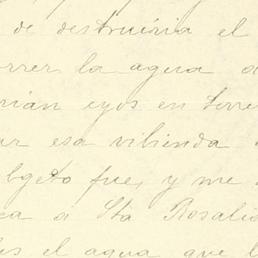 de destruiria el
orrer la agua a
rian eyos en terre
ar esa vilienda
bgeto fue, y me
ca a Sta Rosalia
es el agua que l